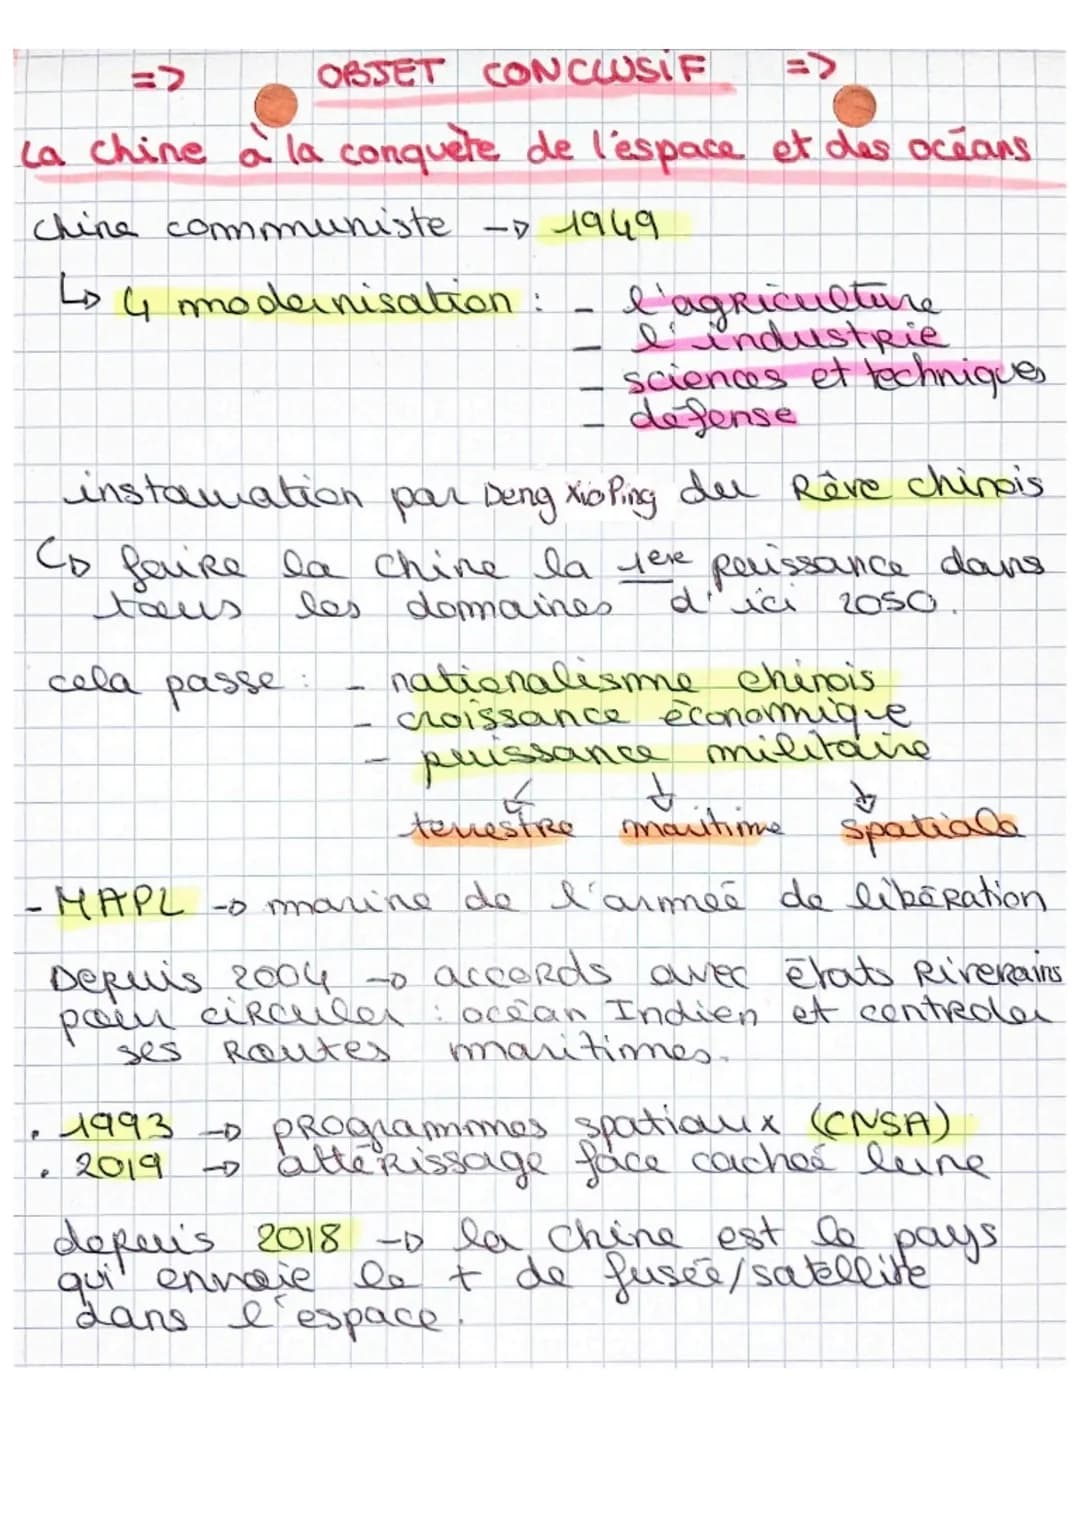 => OBJET CONCLUSIF =>
La Chine à la conquète de l'éspace et des océans
Chine commmuniste -> 1949
↳ 4 modernisation : - l'agriculture
- l'industrie
- sciences et techniques
- défense
instauration par Deng XioPing du Rêve chinois
↳ faire la Chine la 1ere puissance dans
tous les domaines d'ici 2050.
cela passe : - nationalisme chinois
- croissance économique
- puissance militaire
↙ ↓ ↓
terrestre maritime spatiale
- MAPL -> marine de l'armeé de libération
Depuis 2004 -> accords avec états Riverains
pour circuler : océan Indien et controler
ses Routes maritimes.
. 1993 -> programmes spatiaux (CNSA)
. 2019 -> attérissage face cacheé lune
depuis 2018 -> la Chine est le pays
qui envoie le + de fusée/satellite
dans l'espace.